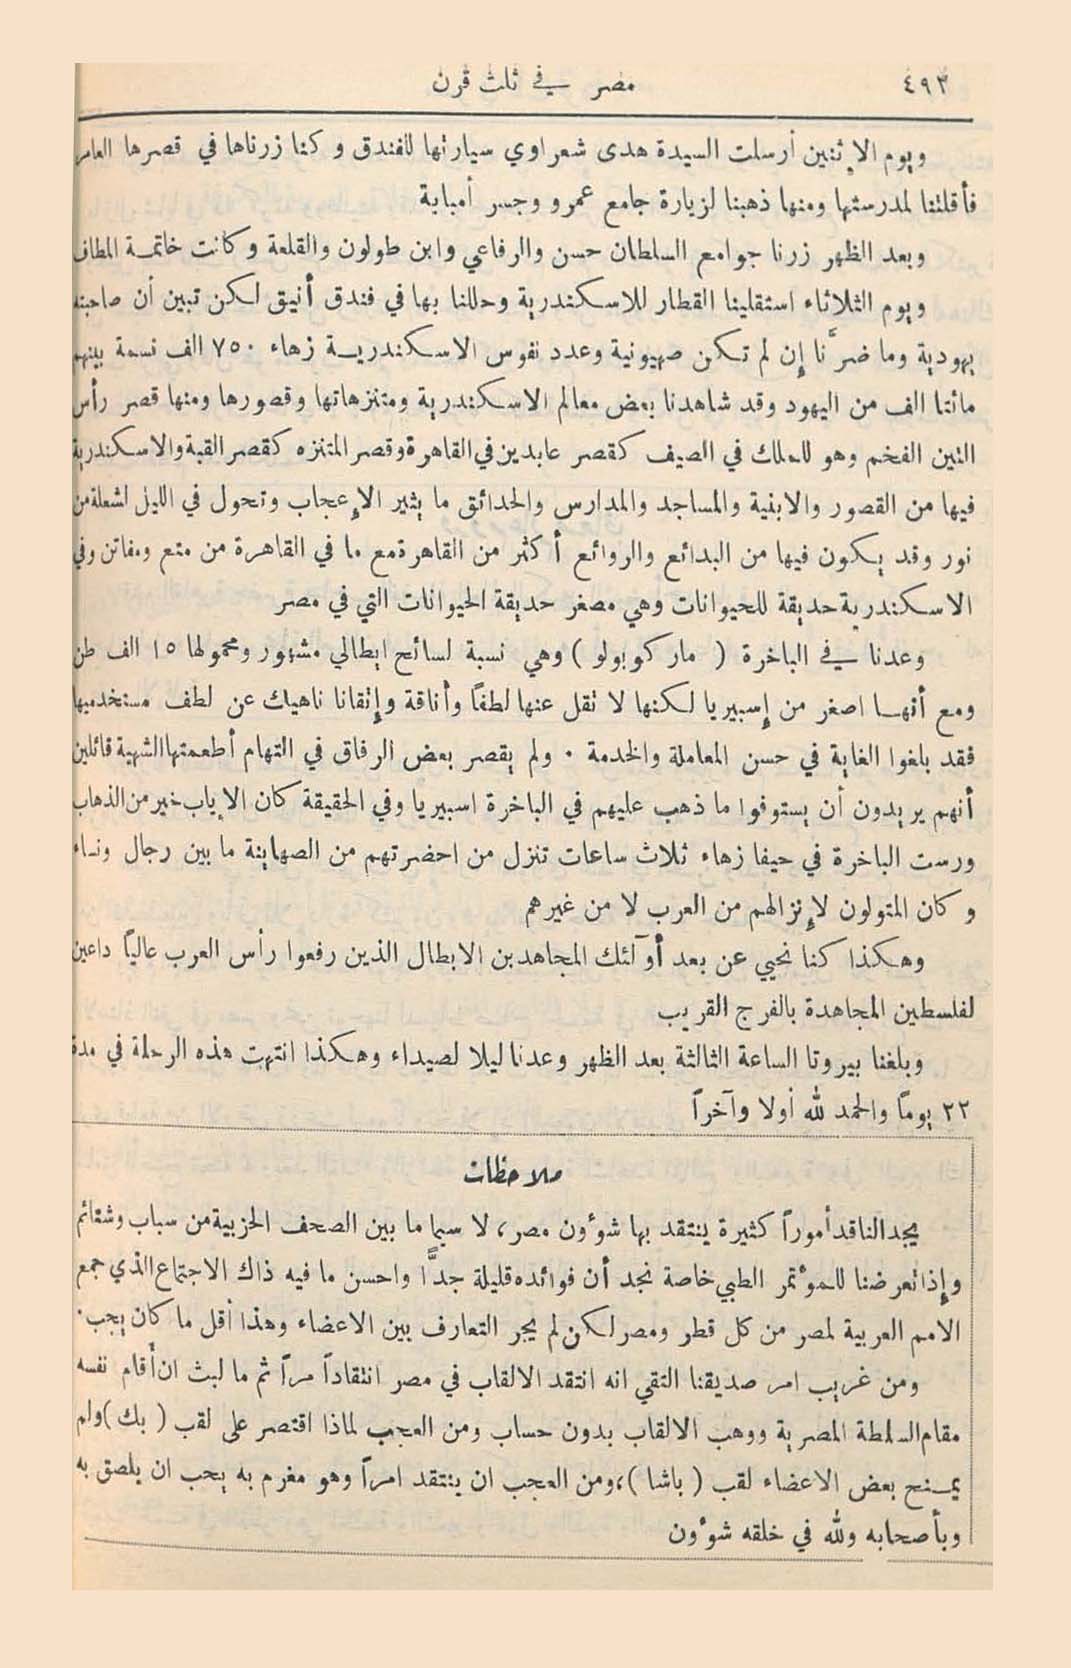 ٤٩٣ مصر في ثلث قرن
ويوم الاثنين أرسلت السيدة هدى شعراوي سيارتها للفندق وكنا زرناها في قصرها العامر
فأقلتنا لمدرستها ومنها ذهبنا لزيارة جامع عمرو وجسر أمبابة
وبعد الظهر زرنا جوامع السلطان حسن والرفاعي وابن طولون والقلعة وكانت خاتمة المطاف
ويوم الثلاثاء استقلينا القطار للاسكندرية وحللنا بها في فندق أنيق لكن تبين أن صاحبته
يهودية وما ضرَّنا إن لم تكن صهيونية وعدد نفوس الاسكندرية زهاء ٧٥٠ الف نسمة بينهم
مائتا الف من اليهود وقد شاهدنا بعض معالم الاسكندرية ومتنزهاتها وقصورها ومنها قصر رأس
التين الفخم وهو للملك في الصيف كقصر عابدين في القاهرة وقصر المتنزه كقصر القبة والاسكندرية
فيها من القصور والابنية والمساجد والمدارس والحدائق ما يثير الإعجاب وتحول في الليل لشعلة من
نور وقد يكون فيها من البدائع والروائع أكثر من القاهرة مع ما في القاهرة من متع ومفاتن وفي
الاسكندرية حديقة للحيوانات وهي مصغر حديقة الحيوانات التي في مصر
وعدنا في الباخرة ( ماركوبولو ) وهي نسبة لسائح ايطالي مشهور ومحمولها ١٥ الف طن
ومع أنها اصغر من إسبيريا لكنها لا تقل عنها لطفاً وأناقة وإتقانا ناهيك عن لطف مستخدميها
فقد بلغوا الغاية في حسن المعاملة والخدمة . ولم يقصر بعض الرفاق في التهام أطعمتها الشهية قائلين
أنهم يريدون أن يستوفوا ما ذهب عليهم في الباخرة اسبيريا وفي الحقيقة كان الإياب خير من الذهاب
ورست الباخرة في حيفا زهاء ثلاث ساعات تنزل من احضرتهم من الصهاينة ما بين رجال ونساء
وكان المتولون لإنزالهم من العرب لا من غيرهم
وهكذا كنا نحيي عن بعد أولئك المجاهدين الابطال الذين رفعوا رأس العرب عالياً داعين
لفلسطين المجاهدة بالفرج القريب
وبلغنا بيروتا الساعة الثالثة بعد الظهر وعدنا ليلا لصيداء وهكذا انتهت هذه الرحلة في مدة
٢٢ يوماً والحمد لله أولا وآخراً
ملاحظات
يجد الناقد أموراً كثيرة ينتقد بها شؤون مصر، لا سيما ما بين الصحف الحزبية من سباب وشتائم
وإذا تعرضنا للمؤتمر الطبي خاصة نجد أن فوائده قليلة جدًّا واحسن ما فيه ذاك الاجتماع الذي جمع
الامم العربية لمصر من كل قطر ومصر لكن لم يجر التعارف بين الاعضاء وهذا أقل ما كان يجب.
ومن غريب امر صديقنا التقي انه انتقد الالقاب في مصر انتقاداً مراً ثم ما لبث ان أقام نفسه
مقام السلطة المصرية ووهب الالقاب بدون حساب ومن العجب لماذا اقتصر على لقب ( بك ) ولم
يمنح بعض الاعضاء لقب ( باشا )، ومن العجب ان ينتقد امراً وهو مغرم به يحب ان يلصق به
وبأصحابه ولله في خلقه شؤون